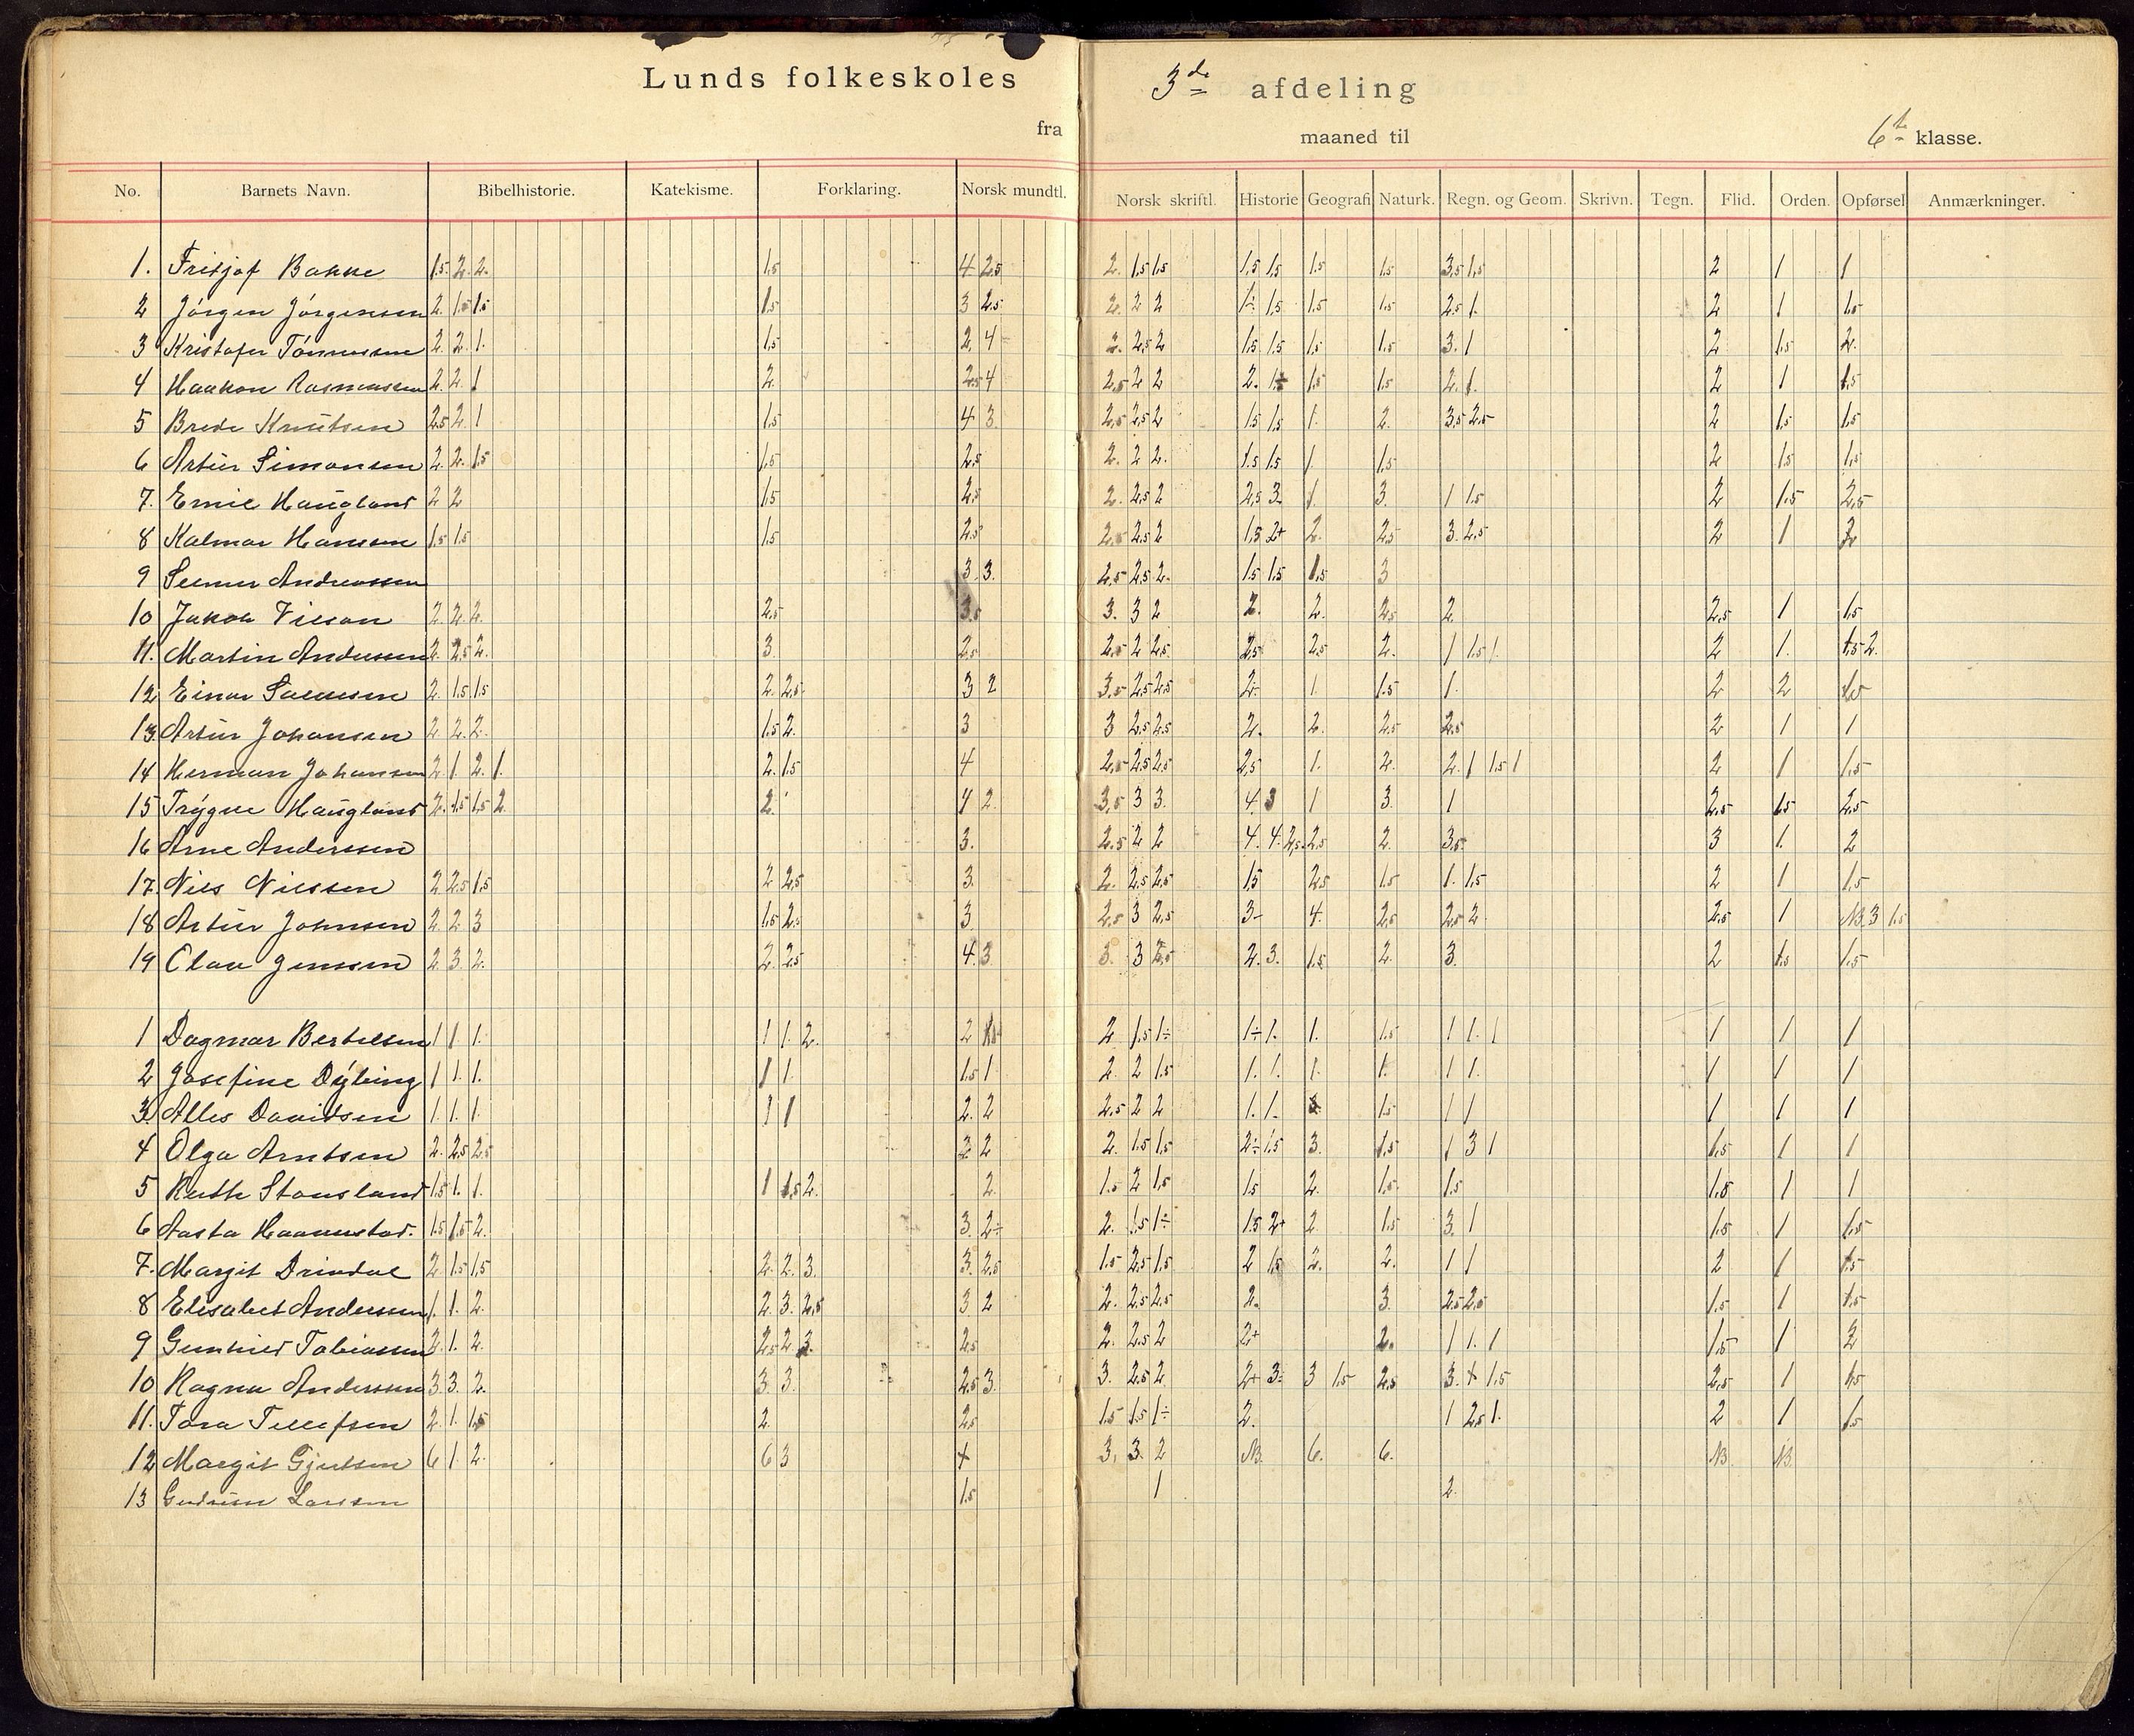 Lunds folkeskoles 3de afdeling
fra maaned til 6te klasse.
No. Barnets Navn. Bibelhistorie. Katekisme. Forklaring. Norsk mundtl. Norsk skriftl. Historie Geografi Naturk. Regn. og Geom. Skrivn. Tegn. Flid. Orden. Opførsel Anmærkninger.
1. Fritjof Bakke 1.5 2. 2. 1.5 4 2.5 2. 1.5 1.5 1.5 1.5 1.5 1.5 3.5 1.5 2 1 1
2 Jórgen Jórgensen 2. 1.5 1.5 1.5 3 2.5 2. 2 2 1÷ 1.5 1.5 1.5 2.5 1. 2 1 1.5
3 Kristofer Tónnessen 2. 2. 1. 1.5 2. 4 2. 2.5 2 1.5 1.5 1.5 1.5 3. 1 2 1.5 2.
4 Haakon Rasmussen 2. 2. 1 2. 2.5 4 2.5 2 2 2. 1÷ 1.5 1.5 2. 1. 2 1 1.5
5 Brede Knutsen 2.5 2. 1 1.5 4 3. 2.5 2.5 2 1.5 1.5 1. 2. 3.5 2.5 2 1.5 1.5
6 Artur Simonsen 2. 2. 1.5 1.5 2.5 2. 2 2. 1.5 1.5 1. 1.5 2 1.5 1.5
7. Emil Haugland 2 2 1.5 2.5 2. 2.5 2 2.5 3. 1. 3. 1 1.5 2 1.5 2.5
8 Kalmar Hansen 1.5 1.5 1.5 2.5 2.5 2.5 2 1.5 2+ 2. 2.5 3. 2.5 2 1 2
9 Selmer Andreassen 3. 3. 2.5 2.5 2. 1.5 1.5 1.5 3
10 Jakob 2. 2. 2. 2.5 3.5 3. 3 2 2. 2. 2.5 2. 2.5 1 1.5
11. Martin Anderssen 2. 2.5 2. 3. 2.5 2.5 2 2.5 2.5 2.5 2. 1 1.5 1. 2 1. 1.5 2.
12 Einar Salvesen 2. 1.5 1.5 2. 2.5 3 2 3.5 2.5 2.5 2÷ 1. 1.5 1. 2 2 1.5
13. Artur Johansen 2. 2. 2. 1.5 2. 3 3 2.5 2.5 2. 2. 2.5 2.5 2 1 1
14 Herman Johansen 2. 1. 2. 1. 2. 1.5 4 2.5 2.5 2.5 2.5 1. 2. 2. 1 1.5 1 2 1 1.5
15 Trygve Haugland 2. 1.5 1.5 2. 2. 4 2. 3.5 3 3. 4. 3 1 3. 1 2.5 1.5 2.5
16 Arne Anderssen 3. 2.5 2 2 4. 4. 2.5 2.5 2. 3.5 3 1. 2
17. Nils Nilssen 2 2.5 1.5 2 2.5 3. 2. 2.5 2.5 1.5 2.5 1.5 1. 1.5 2 1 1.5
18 Artur Johnsen 2. 2 3 1.5 2.5 3 2.5 3 2.5 3- 4. 2.5 2.5 2. 2.5 1 NB. 3 1.5
19 Olav Jenssen 2. 3. 2. 2. 2.5 4. 3 3. 3 2.5 2. 3. 1.5 2. 3. 2 1.5 1.5
1 Dagmar Bertelsen 1 1 1. 1 1. 2. 2 1.5 2 1.5 1÷ 1÷ 1. 1. 1.5 1 1. 1 1 1 1
2 Josefine Dybing 1 1. 1. 1 1. 1.5 1 2. 2 1.5 1. 1. 1. 1. 1 1. 1 1 1
3. Alles Davidsen 1. 1. 1. 1 1 2. 2 2.5 2 2 1. 1. 1.5 1 1 1 1 1
4 Olga Arntsen 2. 2.5 2.5 2 2 2. 1.5 1.5 2÷ 1.5 3. 1.5 1 3 1 1.5 1 1
5 Ruth Stousland 1.5 1. 1. 1 1.5 2. 2. 1.5 2 1.5 1.5 2. 1.5 1.5 1.5 1 1
6 Aasta 1.5 1.5 2. 3. 2÷ 2. 1.5 1÷ 1.5 2+ 2. 1.5 3. 1 1.5 1 1.5
7. Margit Drivdal 2 1.5 1.5 2. 2. 3. 3. 2.5 1.5 2.5 1.5 2 1.5 2. 2. 1 1 2 1 1.5
8 Elisabet Anderssen 1. 1. 2. 2. 3. 2.5 3 2 2. 2.5 2.5 2. 3. 2.5 2.5 1.5 1 1.5
9 Gunhild Tobiassen 2. 1. 2. 2.5 2. 3. 2.5 2. 2.5 2 2+ 2. 1 1. 1 1.5 1 2
10 Ragna Anderssen 3. 3. 2. 3. 3. 2.5 3. 3. 2.5 2 2+ 3÷ 3 1.5 2.5 3. + 1.5 2.5 1 1.5
11. Tora Tellefsen 2. 1. 1.5 2. 2.5 1.5 1.5 1÷ 2. 1 2.5 1. 2 1 1.5
12 Margit Gjertsen 6 1. 2. 6 3 + 3. 3. 2 NB. 6. 6. NB. NB.
13 Gudrun Larsen 1.5 1 2.